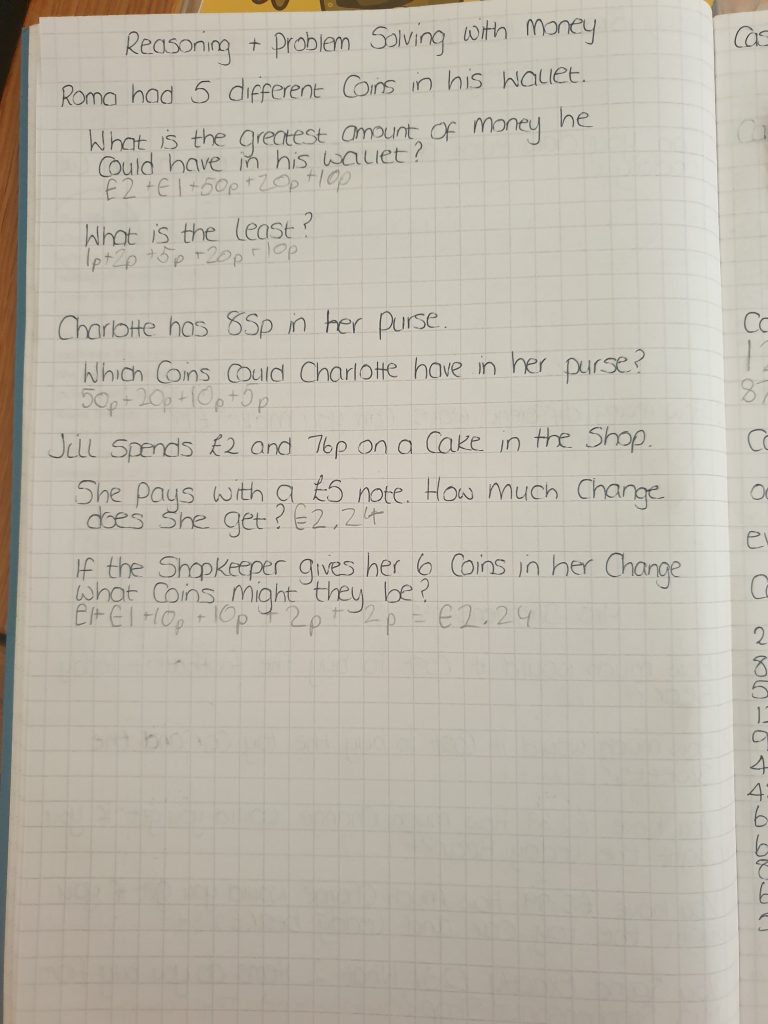 Reasoning + Problem Solving with Money
Roma had 5 different Coins in his wallet.
What is the greatest amount of money he
Could have in his wallet?
£2 + £1 + 50p + 20p + 10p
What is the least?
1p + 2p + 5p + 20p + 10p
Charlotte has 85p in her purse.
Which Coins Could Charlotte have in her purse?
50p + 20p + 10p + 5p
Jill Spends £2 and 76p on a Cake in the Shop.
She Pays with a £5 note. How much Change
does She get? £2.24
If the Shopkeeper gives her 6 Coins in her Change
what Coins might they be?
£1 + £1 + 10p + 10p + 2p + 2p = £2.24
Cas
Co
12
87
Co
ev
2
8
5
9
4
6
6
8
6